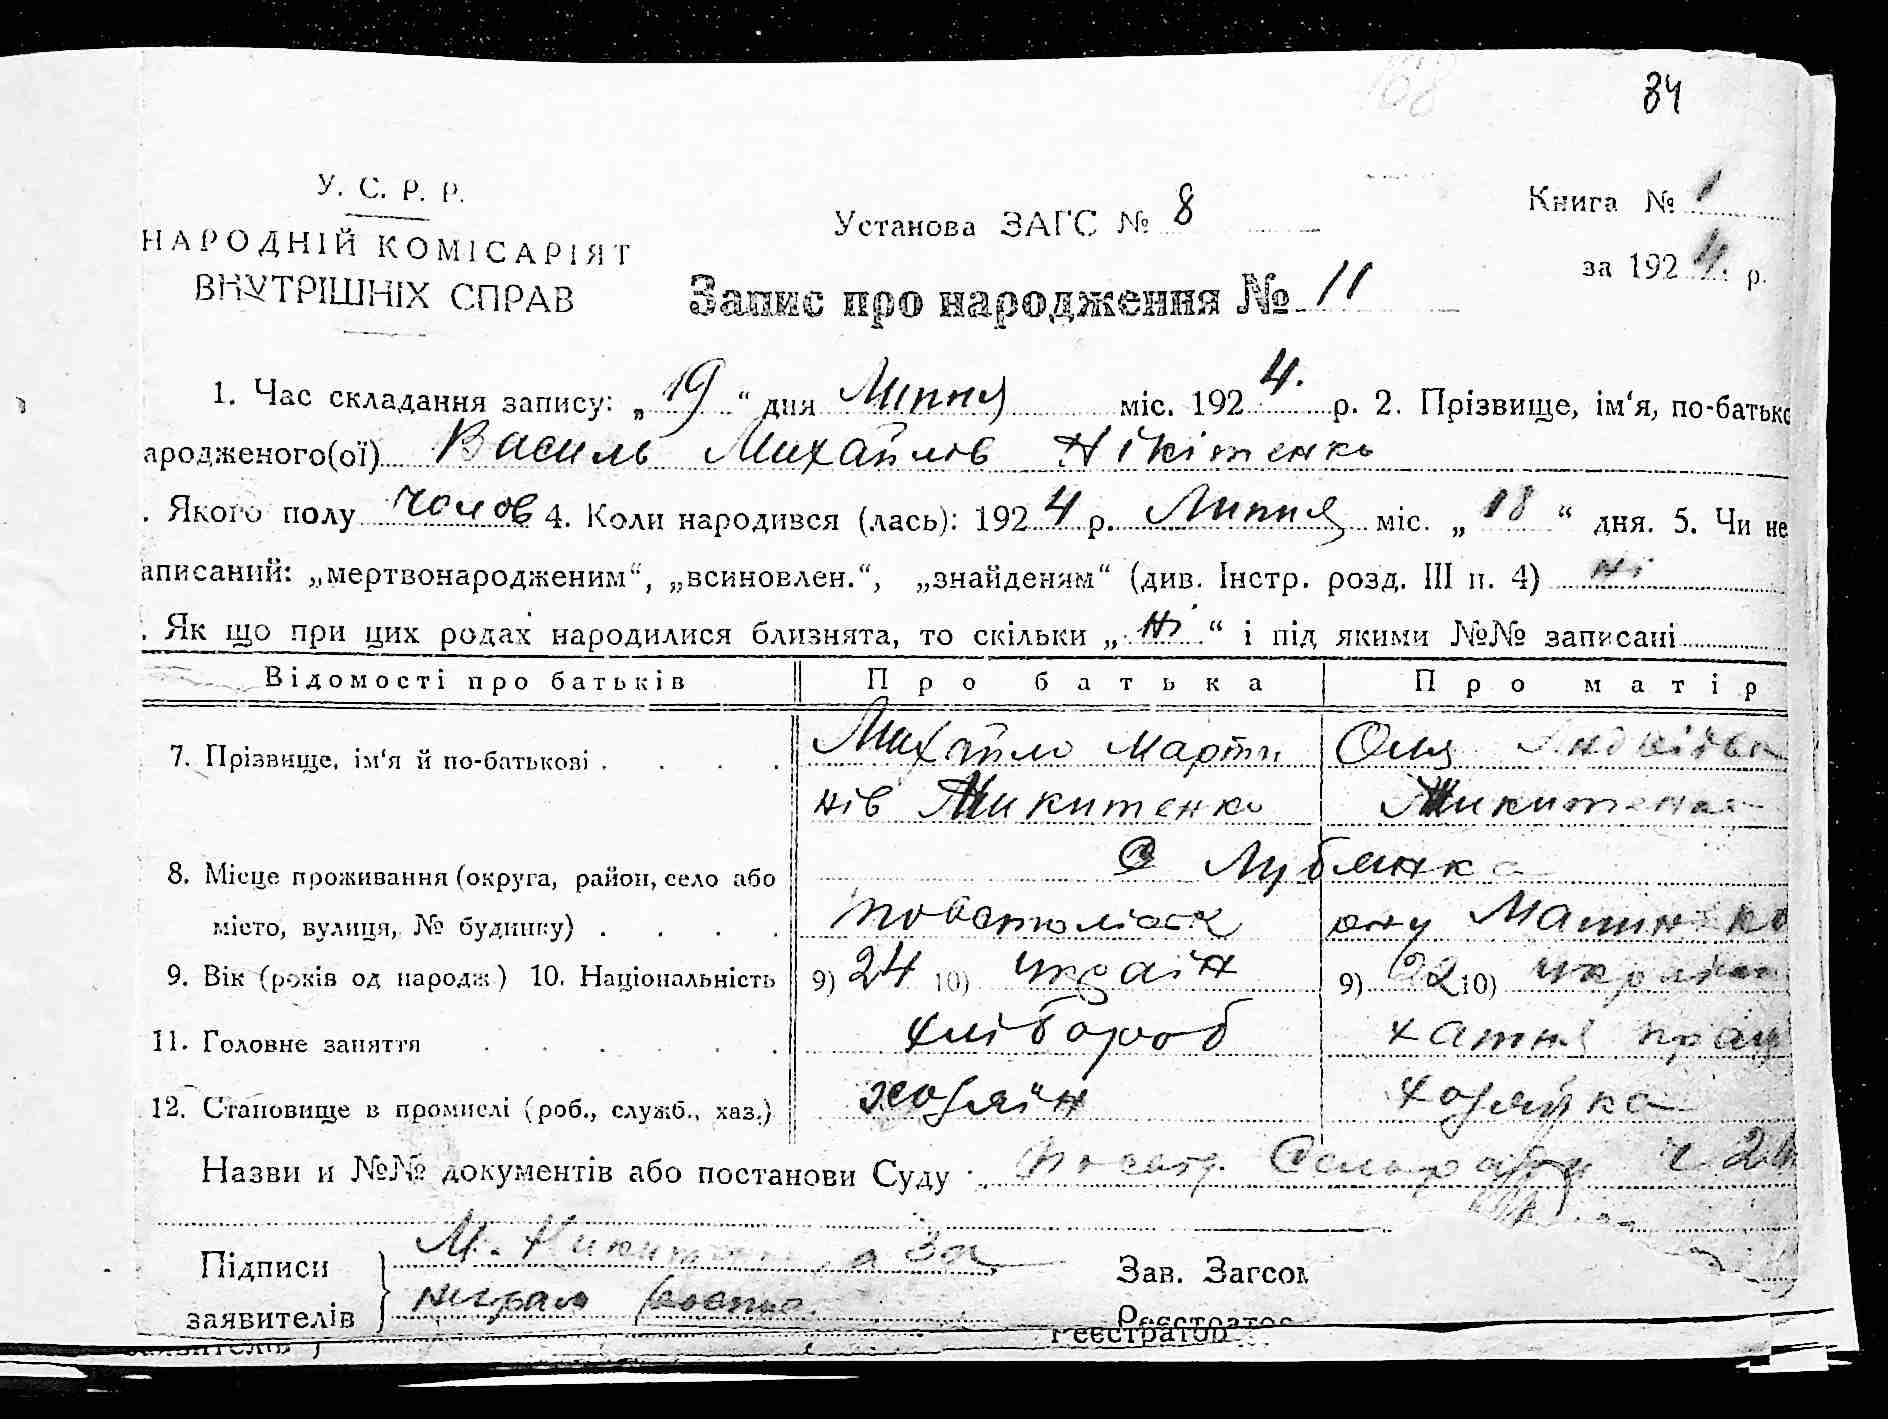 84
У. С. Р. Р.
НАРОДНІЙ КОМІСАРІЯТ
ВНУТРІШНІХ СПРАВ
Установа ЗАГС № 8
Книга № 1
за 1924 р.
Запис про народження № 11
1. Час складання запису: „19“ дня Липня міс. 1924. р. 2. Прізвище, ім‘я, по-батько
ародженого(ої) Василь Михайлів Нікітенко
. Якого полу чолов 4. Коли народився (лась): 1924 р. Липня міс. „18“ дня. 5. Чи не
аписаний: „мертвонародженим“, „всиновлен.“, „знайденям“ (див. Інстр. розд. III п. 4) ні
. Як що при цих родах народилися близнята, то скільки „ні“ і під якими №№ записані
Відомості про батьків Про батька Про матір
7. Прізвище, ім‘я й по-батькові . . . . Михайло Марти Оля
нів Микитенко Микитенко
8. Місце проживання (округа, район, село або С Лубянка
місто, вулиця, № будинку) . . . .
9. Вік (років од народж) 10. Національність 9) 24 10) украін 9) 22 10)
11. Головне заняття . . . . . . хлібороб хатня прац
12. Становище в промислі (роб., служб., хаз.) хозяін хозяйка
Назви и №№ документів або постанови Суду : Сельради ч
Підписи М. Никитен а За
заявителів
Зав. Загсом
Реєстратор
Реєстратор
заявителів }